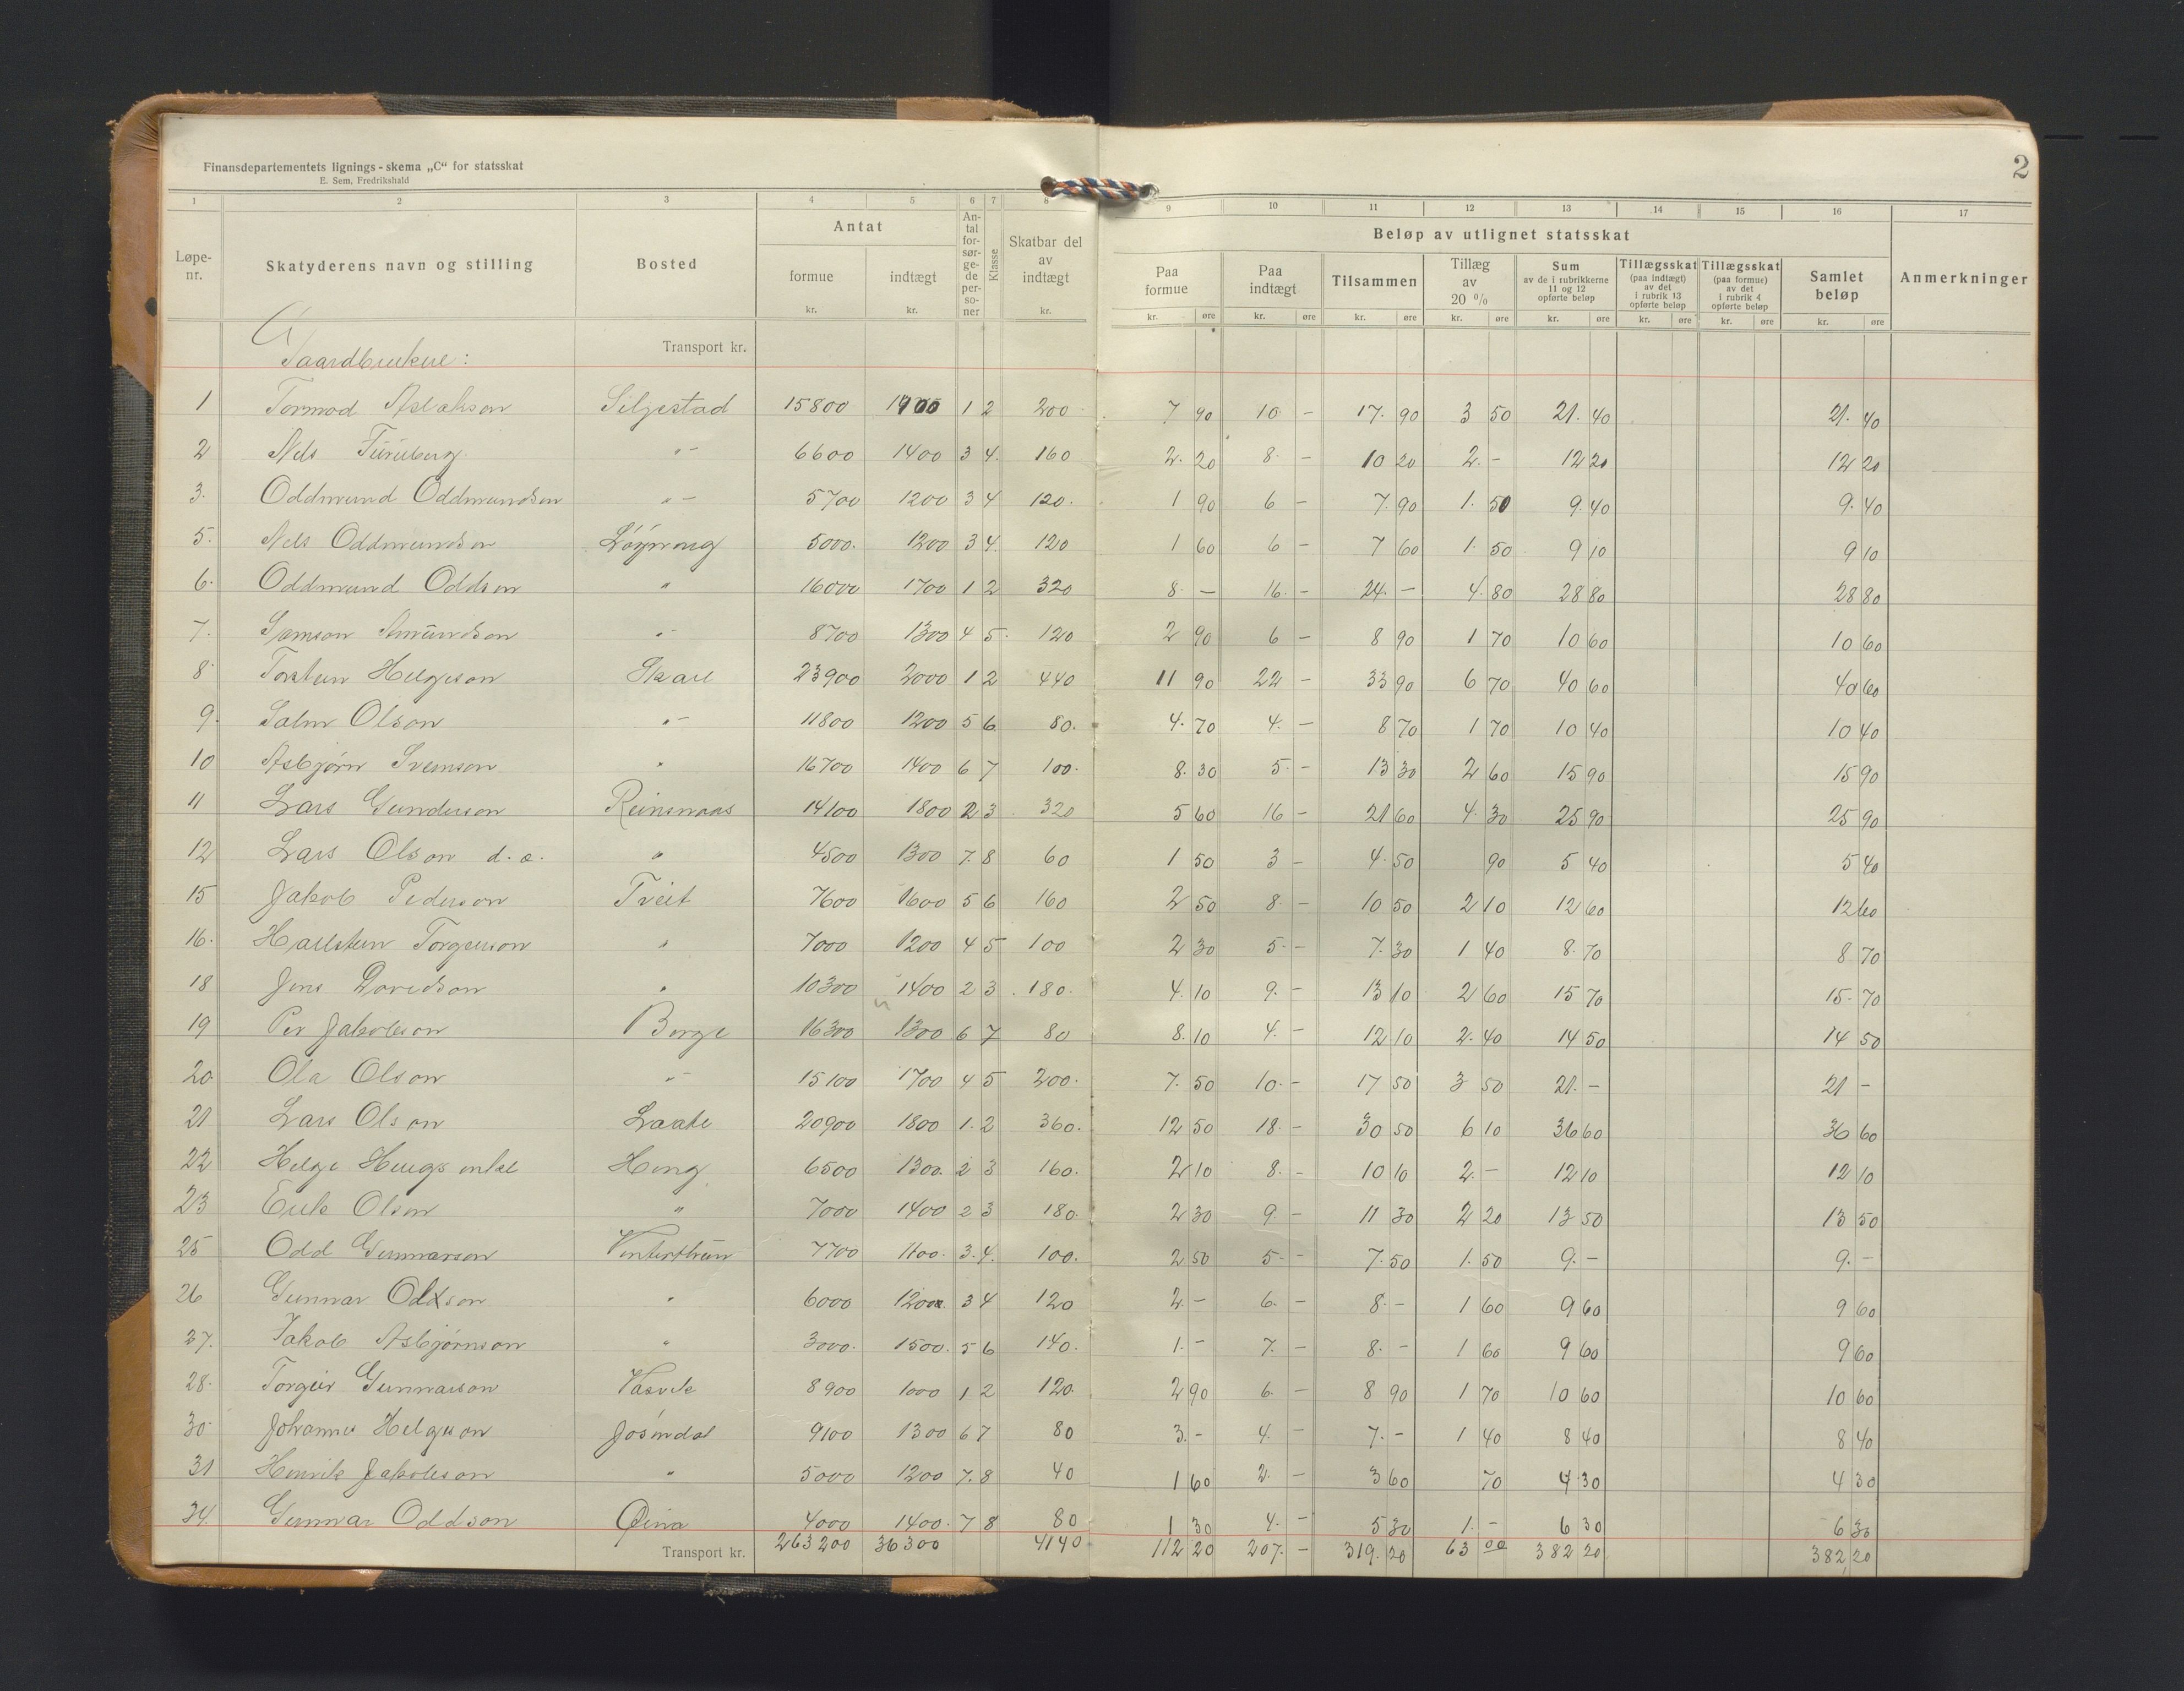 Finansdepartementets lignings-skema „C“ for statsskat
E. Sem, Fredrikshald
2
1 2 3 4 5 6 7 8 9 10 11 12 13 14 15 16 17
Løpe-nr. Skatyderens navn og stilling Bosted Antat formue kr. indtægt kr. Antal forsørgede personer Klasse Skatbar del av indtægt kr. Beløp av utlignet statsskat Paa formue kr. øre Paa indtægt kr. øre Tilsammen kr. øre Tillæg av 20 % kr. øre Sum av de i rubrikkerne 11 og 12 opførte beløp kr. øre Tillægsskat (paa indtægt) av det i rubrik 13 opførte beløp kr. øre Tillægsskat (paa formue) av det i rubrik 4 opførte beløp kr. øre Samlet beløp kr. øre Anmerkninger
Gaardbrukere: Transport kr.
1 Tormod Aslakson Seljestad 15800 1900 1 2 200 7 90 10 - 17. 90 3 50 21. 40 21. 40
2 Nels " - 6600 1400 3 4. 160 2. 20 8 - 10 20 2. - 12 20 12 20
3. Oddmund Oddmundson " - 5700 1200 3 4 120. 1 90 6 - 7. 90 1. 50 9. 40 9. 40
5. Nels Oddmundson Løyning 5000. 1200 3 4. 120 1 60 6 - 7 60 1. 50 9 10 9 10
6. Oddmund Oddson " 16000 1700 1 2 320 8. - 16. - 24. - 4. 80 28 80 28 80
7. Samson Amundson " - 8700 1300 4 5. 120 2 90 6 - 8 90 1 70 10 60 10 60
8 Torstein Helgeson Skare 23900 2000 1 2 440 11 90 22 - 33 90 6 70 40 60 40 60
9. Salm Olson " - 11800 1200 5 6 80. 4. 70 4. - 8 70 1 70 10 40 10 40
10 Asbjørn Svenson " 16700 1400 6 7 100. 8. 30 5. - 13 30 2 60 15 90 15 90
11 Lars Gunderson Reinsnaas 14100 1800 2 3 320 5 60 16 - 21 60 4. 30 25 90 25 90
12 Lars Olson d. e. " 4500 1300 7. 8 60 1 50 3 - 4. 50 90 5 40 5 40
15 Jakob Pederson Tveit 7600 1600 5 6 160 2 50 8. - 10 50 2 10 12 60 12 60
16. Hallstein Torgeirson " 7000 1200 4 5 100 2 30 5. - 7. 30 1 40 8. 70 8 70
18 Jens Davidson " 10300 1400 2 3 180. 4. 10 9. - 13 10 2 60 15 70 15. 70
19 Per Jakobson Berge 16300 1300 6 7 80 8. 10 4. - 12 10 2. 40 14 50 14 50
20 Ola Olson " - 15100 1700 4 5 200. 7. 50 10. - 17 50 3 50 21. - 21 -
21 Lars Olson Laate 20900 1800 1. 2 360. 12 50 18. - 30 50 6 10 36 60 36 60
22 Helge Haugs enkel Heng 6500 1300. 2 3 160. 2 10 8. - 10 10 2. - 12 10 12 10
23 Eirik Olson " 7000 1400 2 3 180 2 30 9 - 11 30 2 20 13 50 13 50
25 Odd Gunnarson Vintertun 7700 1100. 3. 4. 100. 2 50 5. - 7. 50 1. 50 9. - 9. -
26 Gunnar Oldson " 6000 1200. 3 4 120 2. - 6. - 8. - 1 60 9 60 9 60
27. Jakob Asbjørnson " 3000. 1500. 5 6 140. 1. - 7. - 8. - 1 60 9 60 9 60
28. Torgeir Gunnarson Vasvik 8900 1000 1 2 120. 2 90 6. - 8 90 1 70 10 60 10 60
30 Johannes Helgeson Jøsendal 9100 1300 6 7 80 3. - 4. - 7. - 1 40 8 40 8 40
31 Henrik Jakobson " 5000 1200 7. 8 40 1 60 2. - 3 60 70 4. 30 4 30
34. Gunnar Oddson Øina 4000 1400. 7 8 80 1 30 4. - 5 30 1. - 6 30 6 30
Transport kr. 263200 36300 4140 112 20 207. - 319. 20 63 00 382 20 382 20